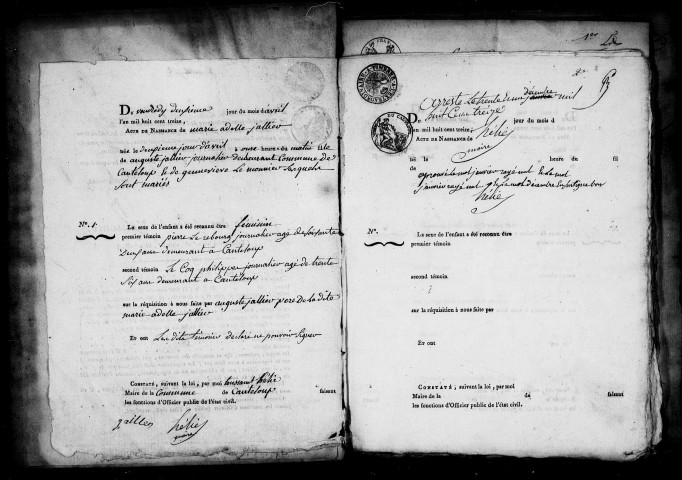 Du vendredy deuxieme jour du mois d'avril
l'an mil huit cent treize,
Acte de Naissance de marie adelle jallier
née le deuxieme jour d'avril à onze heures du matin fille
de auguste jallier journalier demeurant Commune de
Canteloup & de genevieve Le monnier
sont mariés
N.º 1. Le sexe de l'enfant a été reconnu être feminin
premier témoin pierre Le rebourg journalier agé de soixante
Deux ans demeurant à Canteloup
second témoin Le Coq philippe journalier agé de trente
Six ans demeurant à Canteloup
sur la réquisition à nous faite par auguste jallier pere de la dite
marie adelle jallier
Et ont Les dits témoins declaré ne pouvoir Signer
Constaté, suivant la loi, par moi toussaint hélie
Maire de la Commune de Canteloup faisant
les fonctions d'Officier public de l'état civil.
hélie
maire
arresté Le trente & un décembre mil
huit Cent treize
De jour du mois d
l'an mil huit cent treize,
Acte de Naissance de hélie
maire
né le heure du fil
de
hélie
N.º Le sexe de l'enfant a été reconnu être
premier témoin
second témoin
sur la réquisition à nous faite par
Et ont
Constaté, suivant la loi, par moi
Maire de la de faisant
les fonctions d'Officier public de l'état civil.